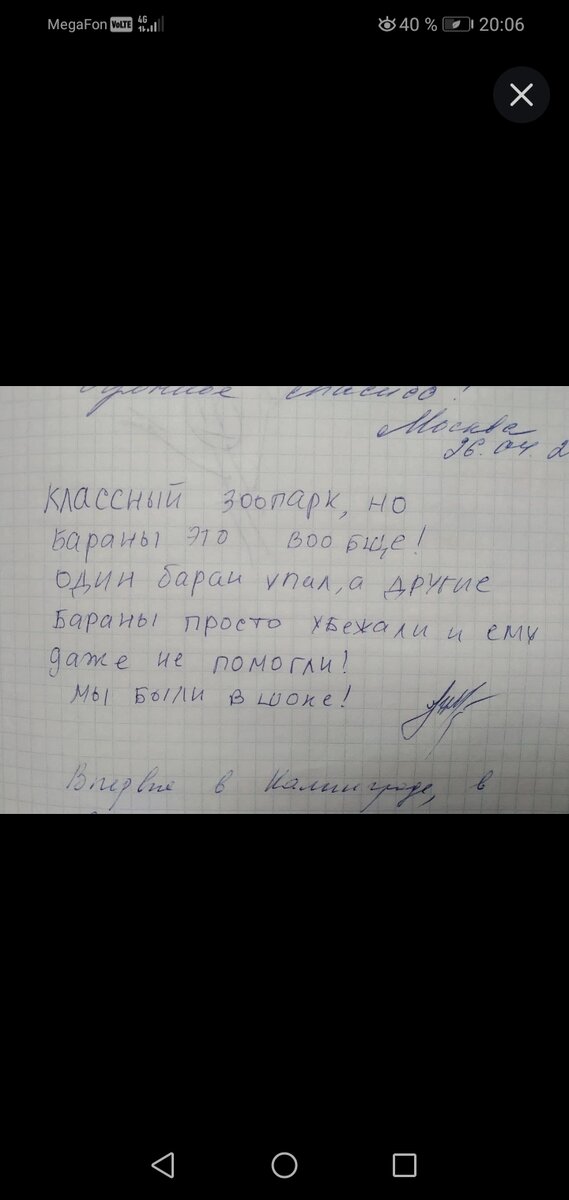 MegaFon VoLTE 4G 40 % 20:06
спасибо!
Москва
26.04.2
Классный зоопарк, но
Бараны это воо бще!
один баран упал, а другие
Бараны просто убежали и ему
даже не помогли!
Мы были в шоке!
Впервые в Калининграде, в